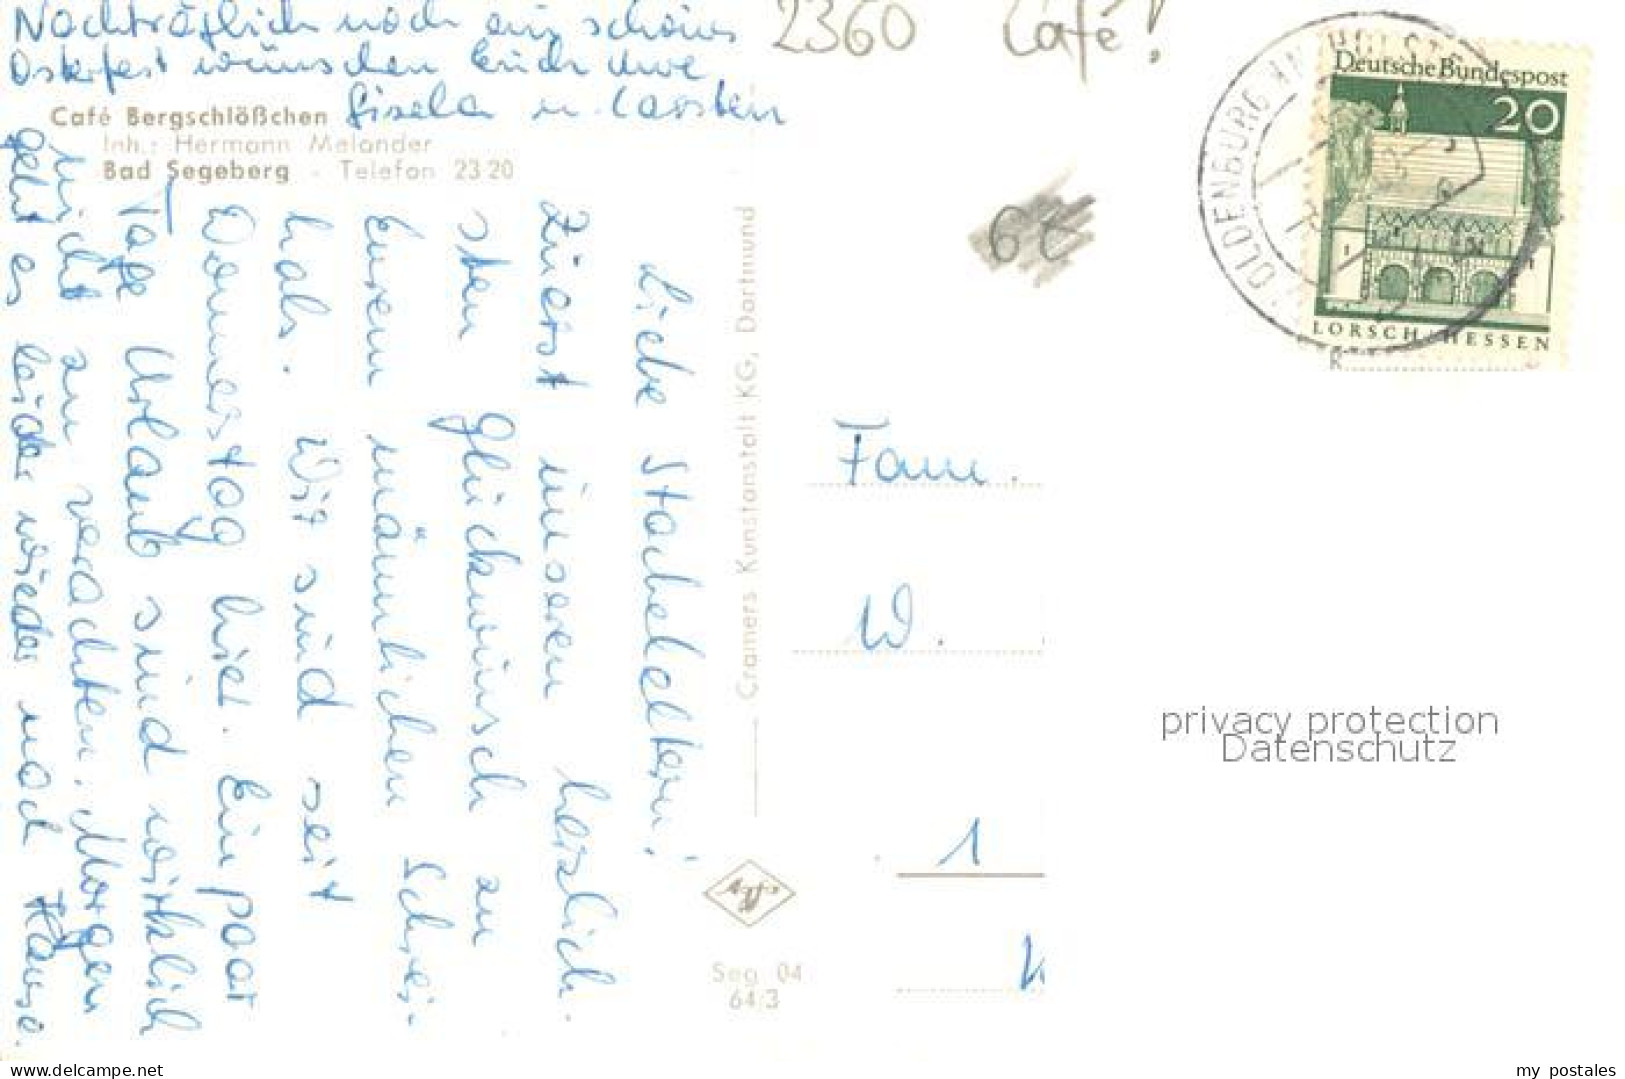 Nachträglich noch ein schönes
Osterfest wünschen Euch Uwe
Gisela u. Carsten
Café Bergschlößchen
Inh.: Hermann Melander
Bad Segeberg - Telefon 23 20
Liebe Stacheleltern!
Zuerst unseren herzlich-
sten Glückwunsch zu
Eurem männlichen Schrei-
hals. Wir sind seit
Donnerstag hier. Ein paar
Tage Urlaub sind wirklich
nicht zu verachten. Morgen
geht es leider wieder nach Hause.
Cramers Kunstanstalt KG, Dortmund
Seg 04
64:3
2360 Café!
OLDENBURG IN HOLST
Deutsche Bundespost
20
LORSCH/HESSEN
Fam.
W.
1
privacy protection
Datenschutz
www.delcampe.net
my_postales